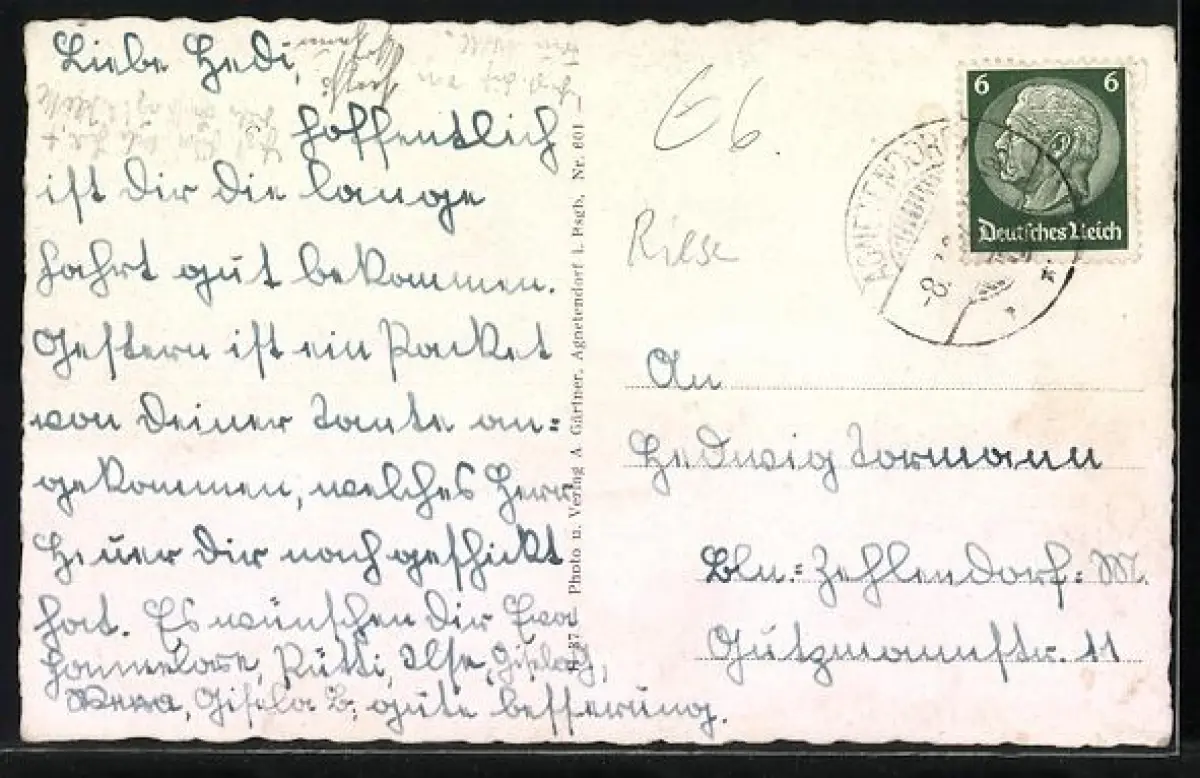 Liebe Hedi,
hoffentlich
ist dir die lange
Fahrt gut bekommen.
Gestern ist ein Packet
von deiner Tante an=
gekommen, welches Herr
Heuer dir nachgeschickt
hat. Es wünschen dir Eva
Hannelore, Rütti, Ilse, Gisela
Wera, Gisela B. gute besserung.
Photo u. Verlag A. Gärtner, Agnetendorf i. Rsgb. Nr. 601
E 6.
Riese
6 6
Deutsches Reich
AGNETENDORF
-8.
An
Hedwig Tormann
Bln.=Zehlendorf=M.
Gutzmannstr. 11